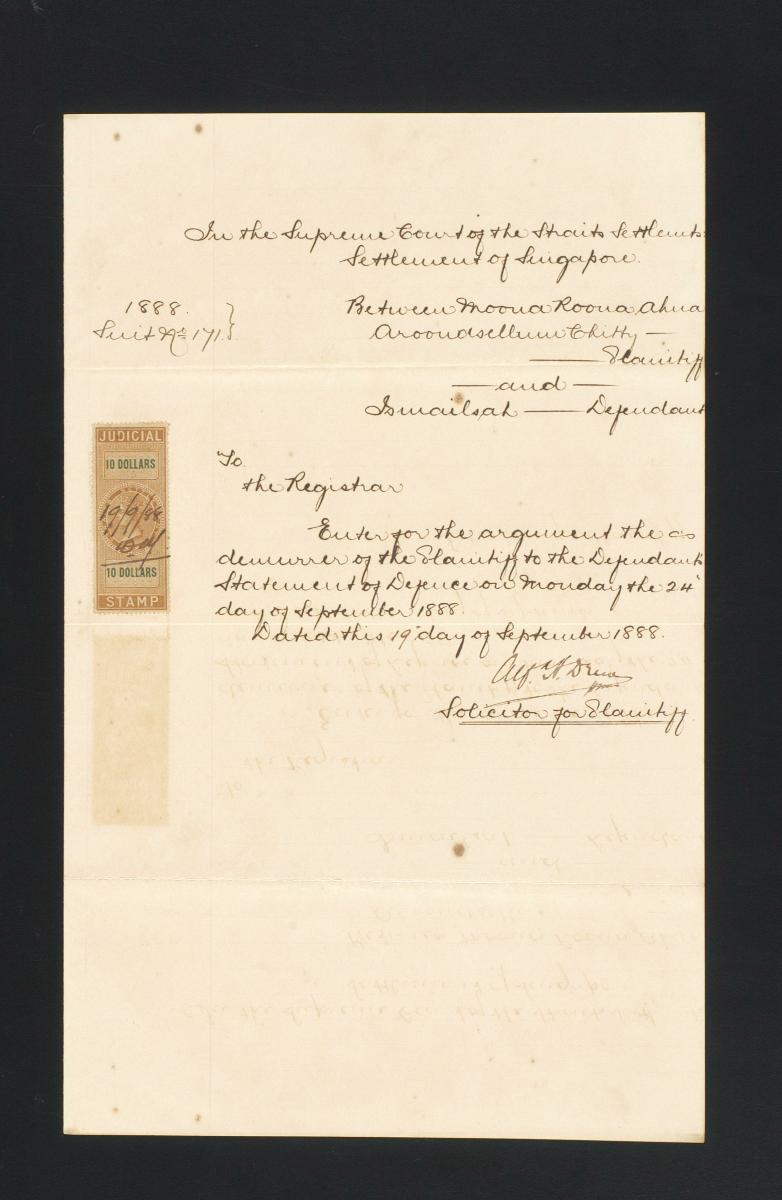 In the Supreme Court of the Straits Settlemts:
Settlement of Singapore.
1888.
Suit No 171.
Between Moona Roona Ahna
Aroondsellum Chitty —
—— Plaintiff
— and —
Ismailsah —— Defendant
JUDICIAL
10 DOLLARS
19/9/88
10 DOLLARS
STAMP
To
the Registrar
Enter for the argument the
demurrer of the Plaintiff to the Defendants
Statement of Defence on Monday the 24"
day of September 1888.
Dated this 19" day of September 1888.
Solicitor for Plaintiff